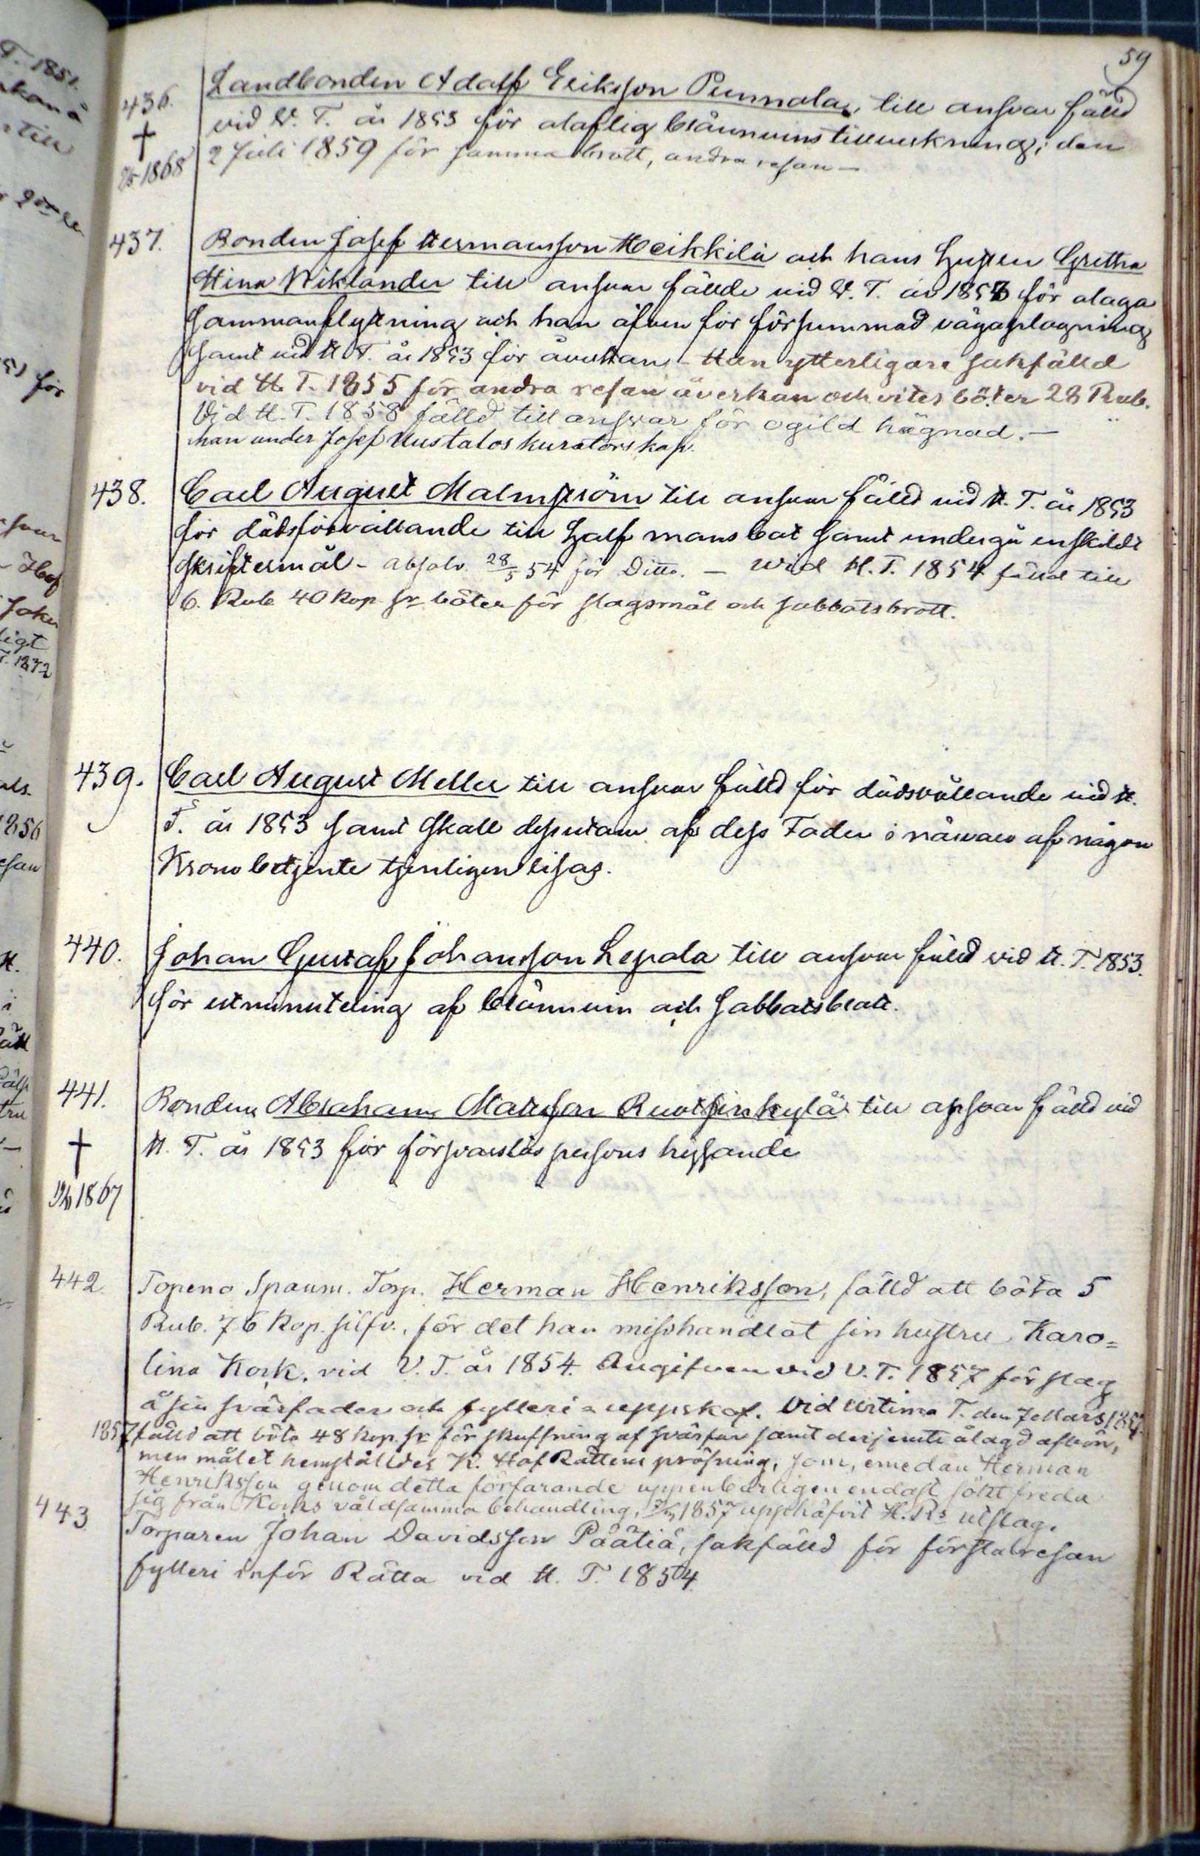 59
436. Landbonden Adolf Eriksson Punnala, till ansvar fälld
† vid V. T. år 1853 för olaflig bränvins tillverkning; den
1868 2 Juli 1859 för samma brott, andra resan —
437. Bonden Josef Hermansson Heikkilä och hans Hustru Gretha
Stina Wiklander till ansvar fällde vid V. T. år 1853 för olaga
sammanflyttning och han äfven för försummad vägaplogning
samt vid H. T. år 1853 för åverkan – Han ytterligare sakfälld
vid H. T. 1855 för andra resan åverkan och vites böter 28 Rub.
Vid H. T. 1858 fälld till ansvar för ogild hägnad. —
han under Josef Kustalos kuratorskap.
438. Carl August Malmström till ansvar fälld vid H. T. år 1853
för dödsförvållande till half mansbot samt undergå enskildt
skriftermål – absolv. 28/5 54 för Ditto. — Wid H. T. 1854 fälld till
6. Rub 40 kop. Sr böter för slagsmål och sabbatsbrott.
439. Carl August Meller till ansvar fälld för dödsvållande vid H.
T. år 1853 samt skall dessutom af dess Fader i närvaro af någon
Kronobetjente tjenligen lisas.
440. Johan Gustaf Johansson Lepola till ansvar fälld vid H. T. 1853.
för utminutering af bränvin och Sabbatsbrott.
441. Bonden Abraham Matsson Ruotsinkylä till ansvar fälld vid
† H. T. år 1853 för försvarslös persons hysande
1867
442 Topeno Spanm. Torp. Herman Henriksson, fälld att böta 5
Rub. 76 Kop. silfv., för det han misshandlat sin hustru Karo=
lina Kork, vid V. T. år 1854. Angifven vid V. T. 1857 för slag
å sin svärfader och fylleri = uppskof. Vid Urtima T. den 7 Mars 1857
1857 fälld att böta 48 kop. Sr för skuffning af svärfar samt derjemte ålagd afbön,
men målet hemställdes K. Hof Rättens pröfning, som, emedan Herman
Henriksson genom detta förfarande uppenbarligen endast sökt freda
sig från Korks våldsamma behandling, 1857 upphäfvit H. Rs utslag.
443 Torparen Johan Davidsson Päätiä, sakfälld för första resan
fylleri inför Rätta vid H. T. 1854